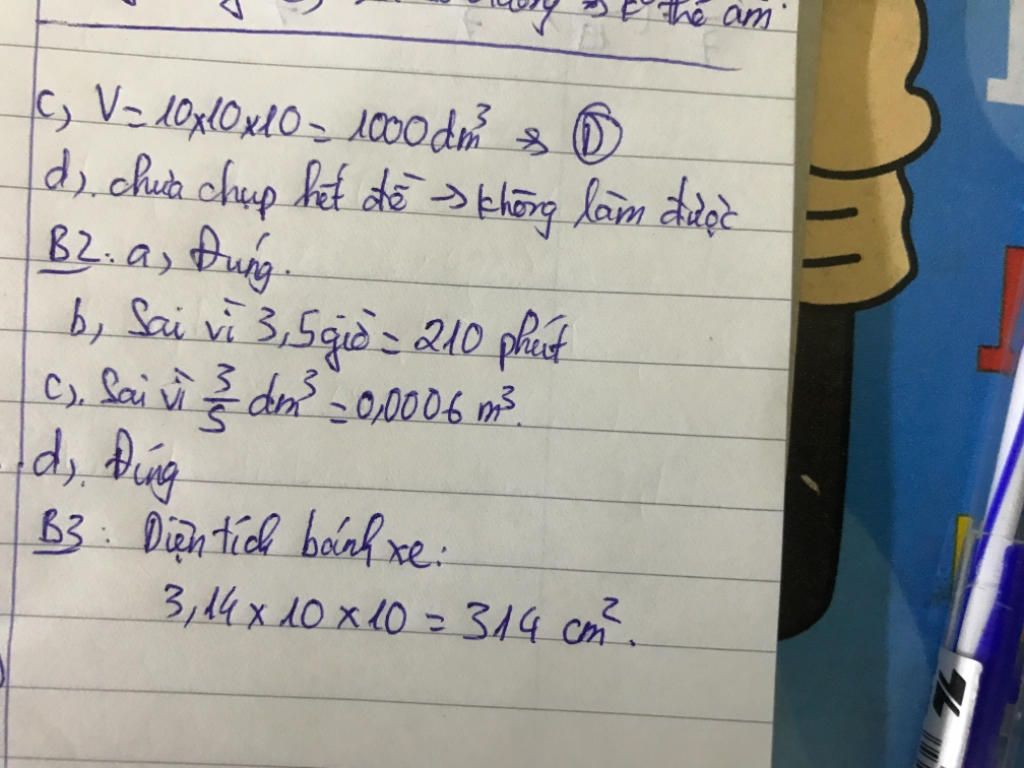 thể âm
c, V = 10x10x10 = 1000dm³ → Ⓓ
d). chưa chụp hết đề → không làm được
B2: a, Đúng.
b, Sai vì 3,5giờ = 210 phút
c). Sai vì 3/5 dm³ = 0,0006 m³.
d). Đúng
B3: Diện tích bánh xe:
3,14 x 10 x 10 = 314 cm².